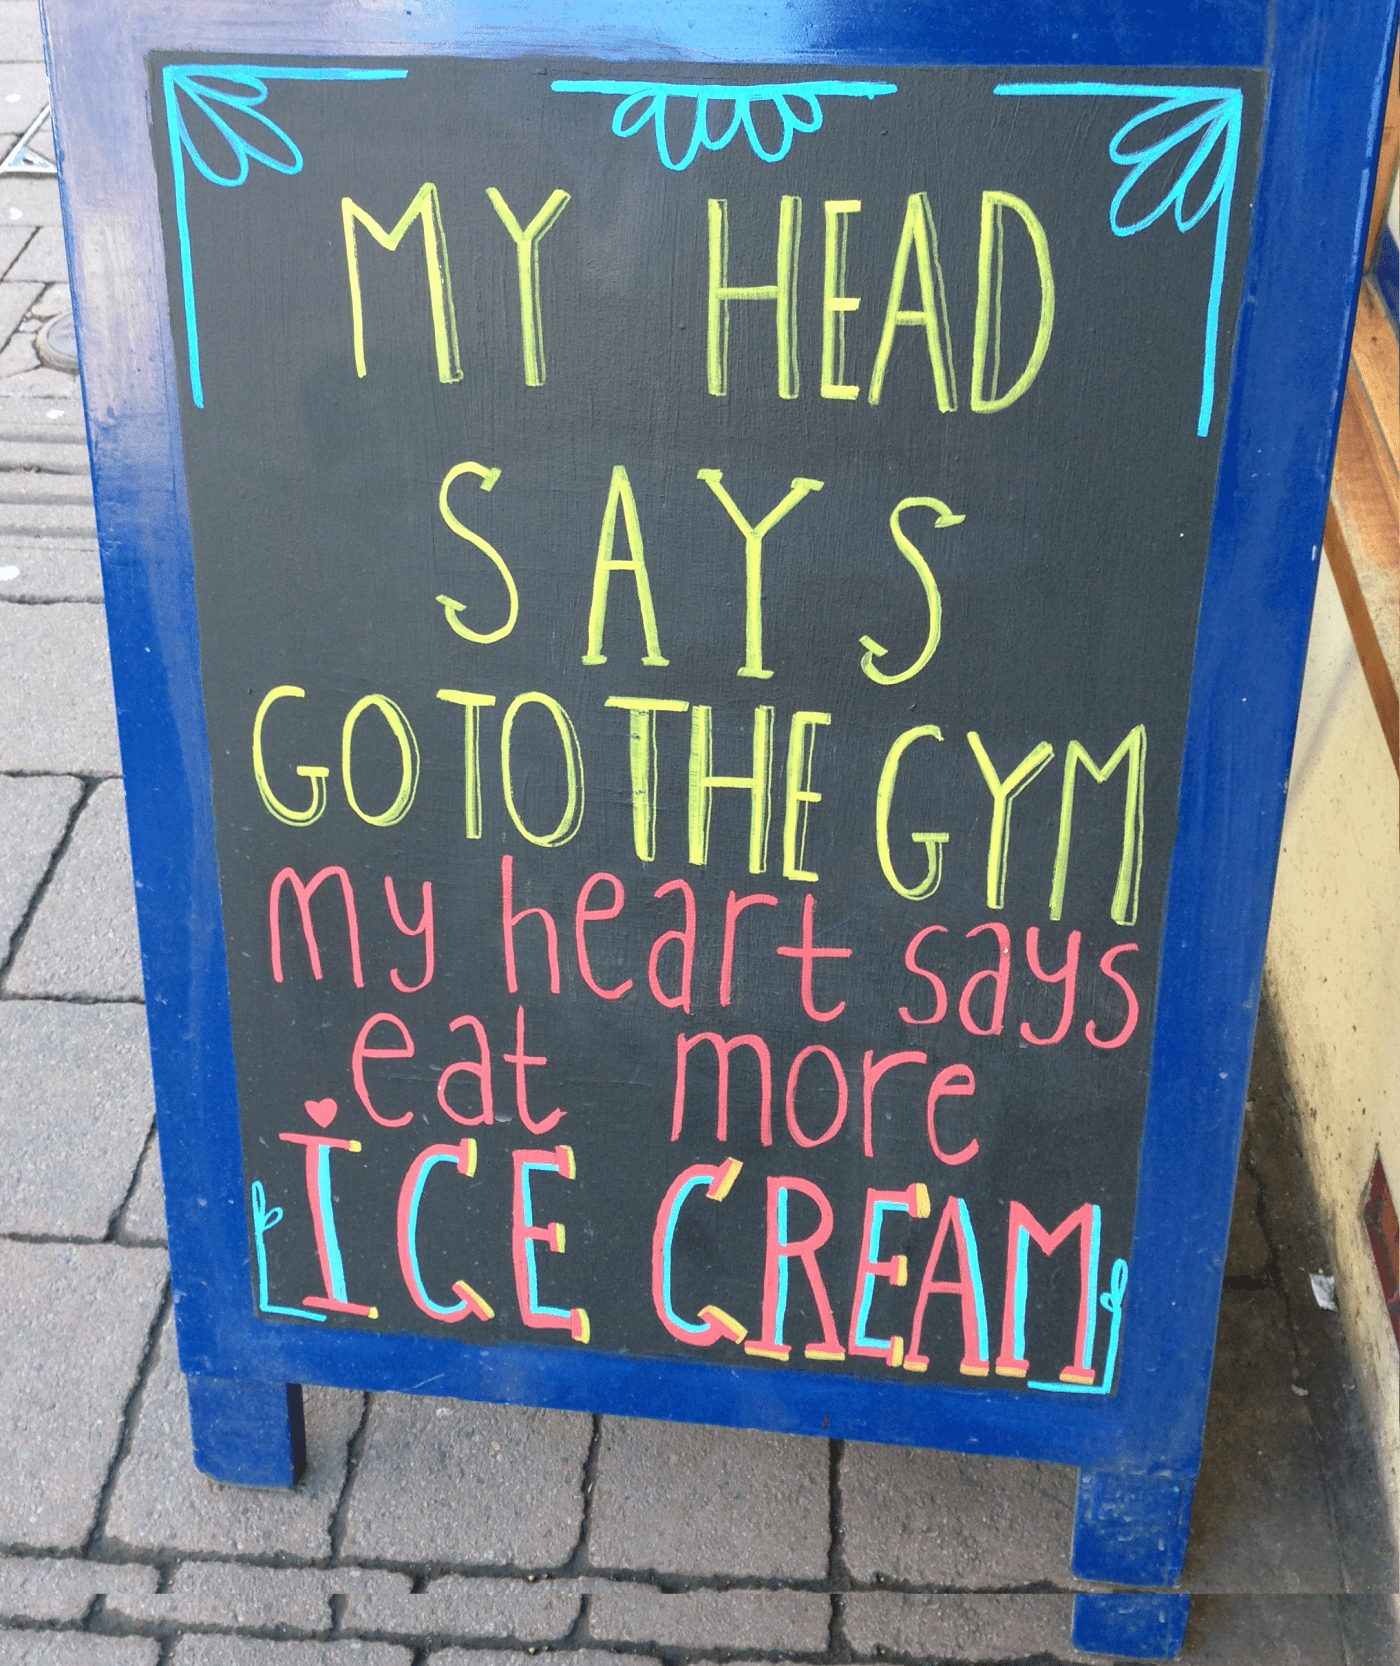 MY HEAD
SAYS
GO TO THE GYM
my heart says
eat more
ICE CREAM